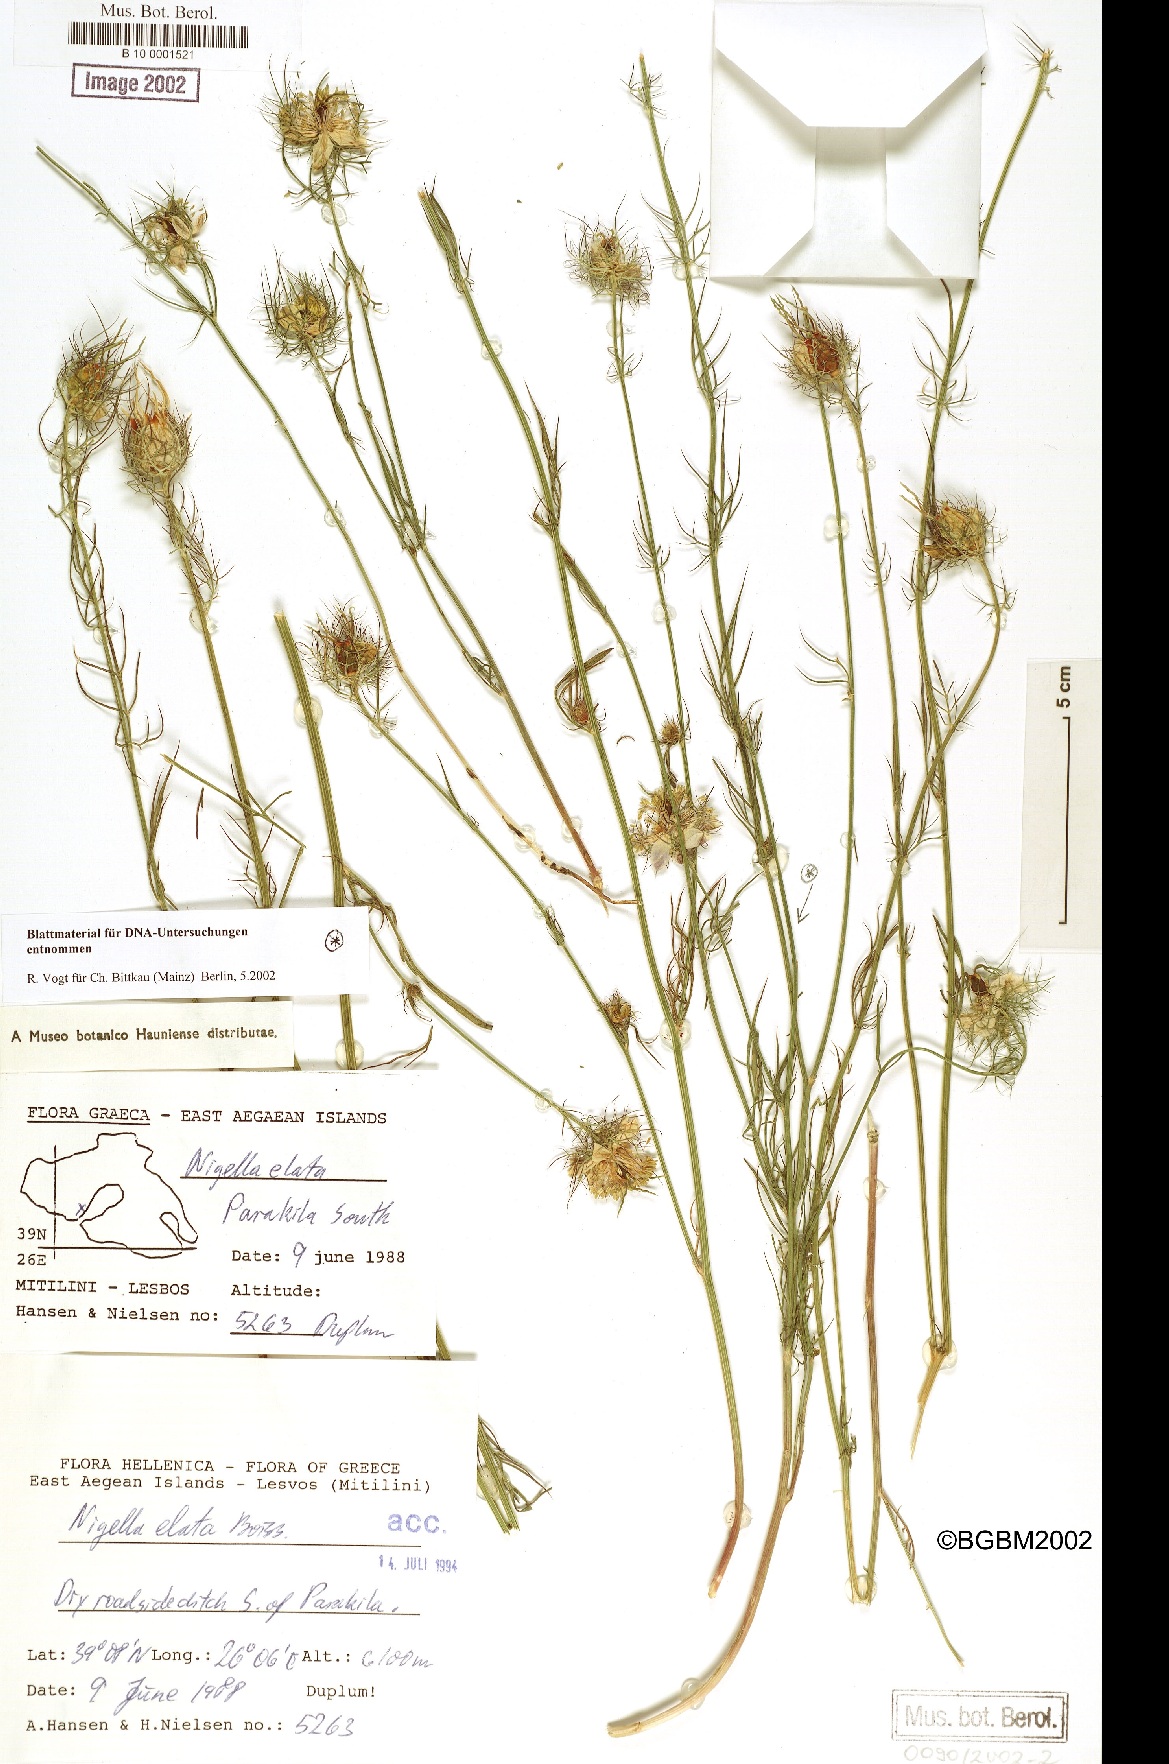 Mus. Bot. Berol.
B 10 0001521
Image 2002
5 cm
Blattmaterial für DNA-Untersuchungen
entnommen
R. Vogt für Ch. Bittkau (Mainz) Berlin, 5.2002
A Museo botanico Hauniense distributae.
FLORA GRAECA - EAST AEGAEAN ISLANDS
Nigella elata
Parakila South
39N
26E
Date: 9 june 1988
MITILINI - LESBOS
Altitude:
Hansen & Nielsen no: 5263 Duplum
FLORA HELLENICA - FLORA OF GREECE
East Aegean Islands - Lesvos (Mitilini)
Nigella elata Boiss.
acc.
14. JULI 1994
Dry roadside ditch S. of Parakila.
Lat: 39°08'N Long.: 26°06'E Alt.: c/00m
Date: 9 June 1988 Duplum!
A.Hansen & H.Nielsen no.: 5263
©BGBM2002
Mus. bot. Berol.
0090/2002-2